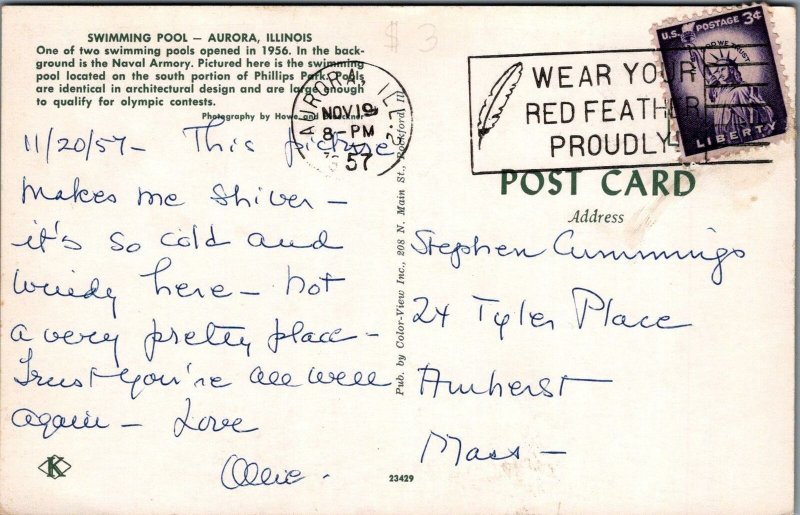 SWIMMING POOL — AURORA, ILLINOIS
One of two swimming pools opened in 1956. In the back-
ground is the Naval Armory. Pictured here is the swimming
pool located on the south portion of Phillips Park. Pools
are identical in architectural design and are large enough
to qualify for olympic contests.
Photography by Howe and
$3
AURORA, ILL.
NOV 19
8-PM
57
WEAR YOUR
RED FEATHER
PROUDLY
U.S. POSTAGE 3¢
IN GOD WE TRUST
LIBERTY
11/20/57 — This picture
makes me shiver —
it's so cold and
windy here — not
a very pretty place —
Trust you're all well
again — Love
Ollie.
Pub. by Color-View Inc., 208 N. Main St., Rockford Ill.
POST CARD
Address
Stephen Cummings
24 Tyler Place
Amherst
Mass —
K
23429